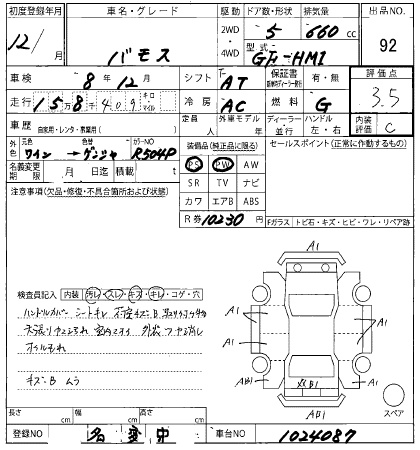 初度登録年月 車名・グレード 駆動 ドア数・形状 排気量 出品NO.
12/ 月 バモス 2WD・4WD 5 660 cc 92
型式 GF-HM1
車検 8年12月 シフト AT 保証書 有・無 評価点
走行 15万8千409 キロ マイル 冷房 AC 燃料 G 3.5
車歴 自家用・レンタ・教習用( ) 定員 人 外車モデル 年 ディーラー 並行 ハンドル 左・右 内装評価 C
外色 元色 ワイン → 色替 ゲンジャ カラーNO R504P 装備品(純正品に限る) セールスポイント(正常に作動するもの)
PS PW AW
名義変更期限 月 日迄 積載 t SR TV ナビ
注意事項(欠品・修復・不具合箇所および状態) カワ エアB ABS
R券 10230 円 Fガラス トビ石・キズ・ヒビ・ワレ・リペア跡
検査員記入 内装 汚レ・スレ・キズ・キレ・コゲ・穴
ハンドルカバー シートキレ
オイルもれ
キズ・B ムラ
A1
A1 A1
A1 A1
AB1 A1
XB1
AB1
スペア
長さ cm 幅 cm 高さ cm
登録NO 名変中 車台NO 1024087